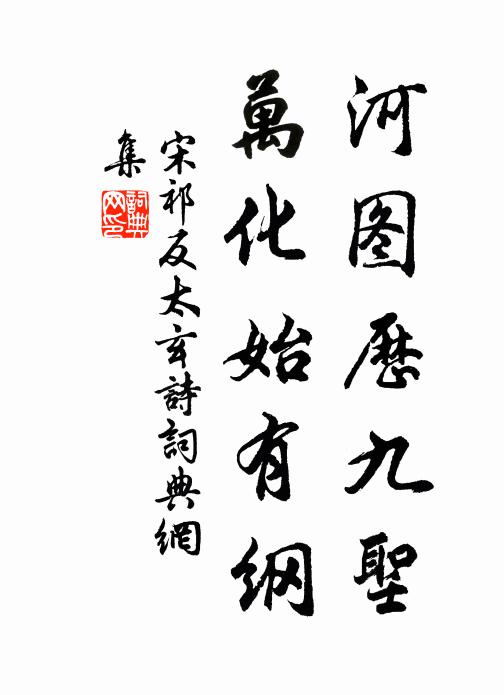 河图歷九聖
萬化始有纲
宋祁反太玄詩詞典網
集
詞典
网印